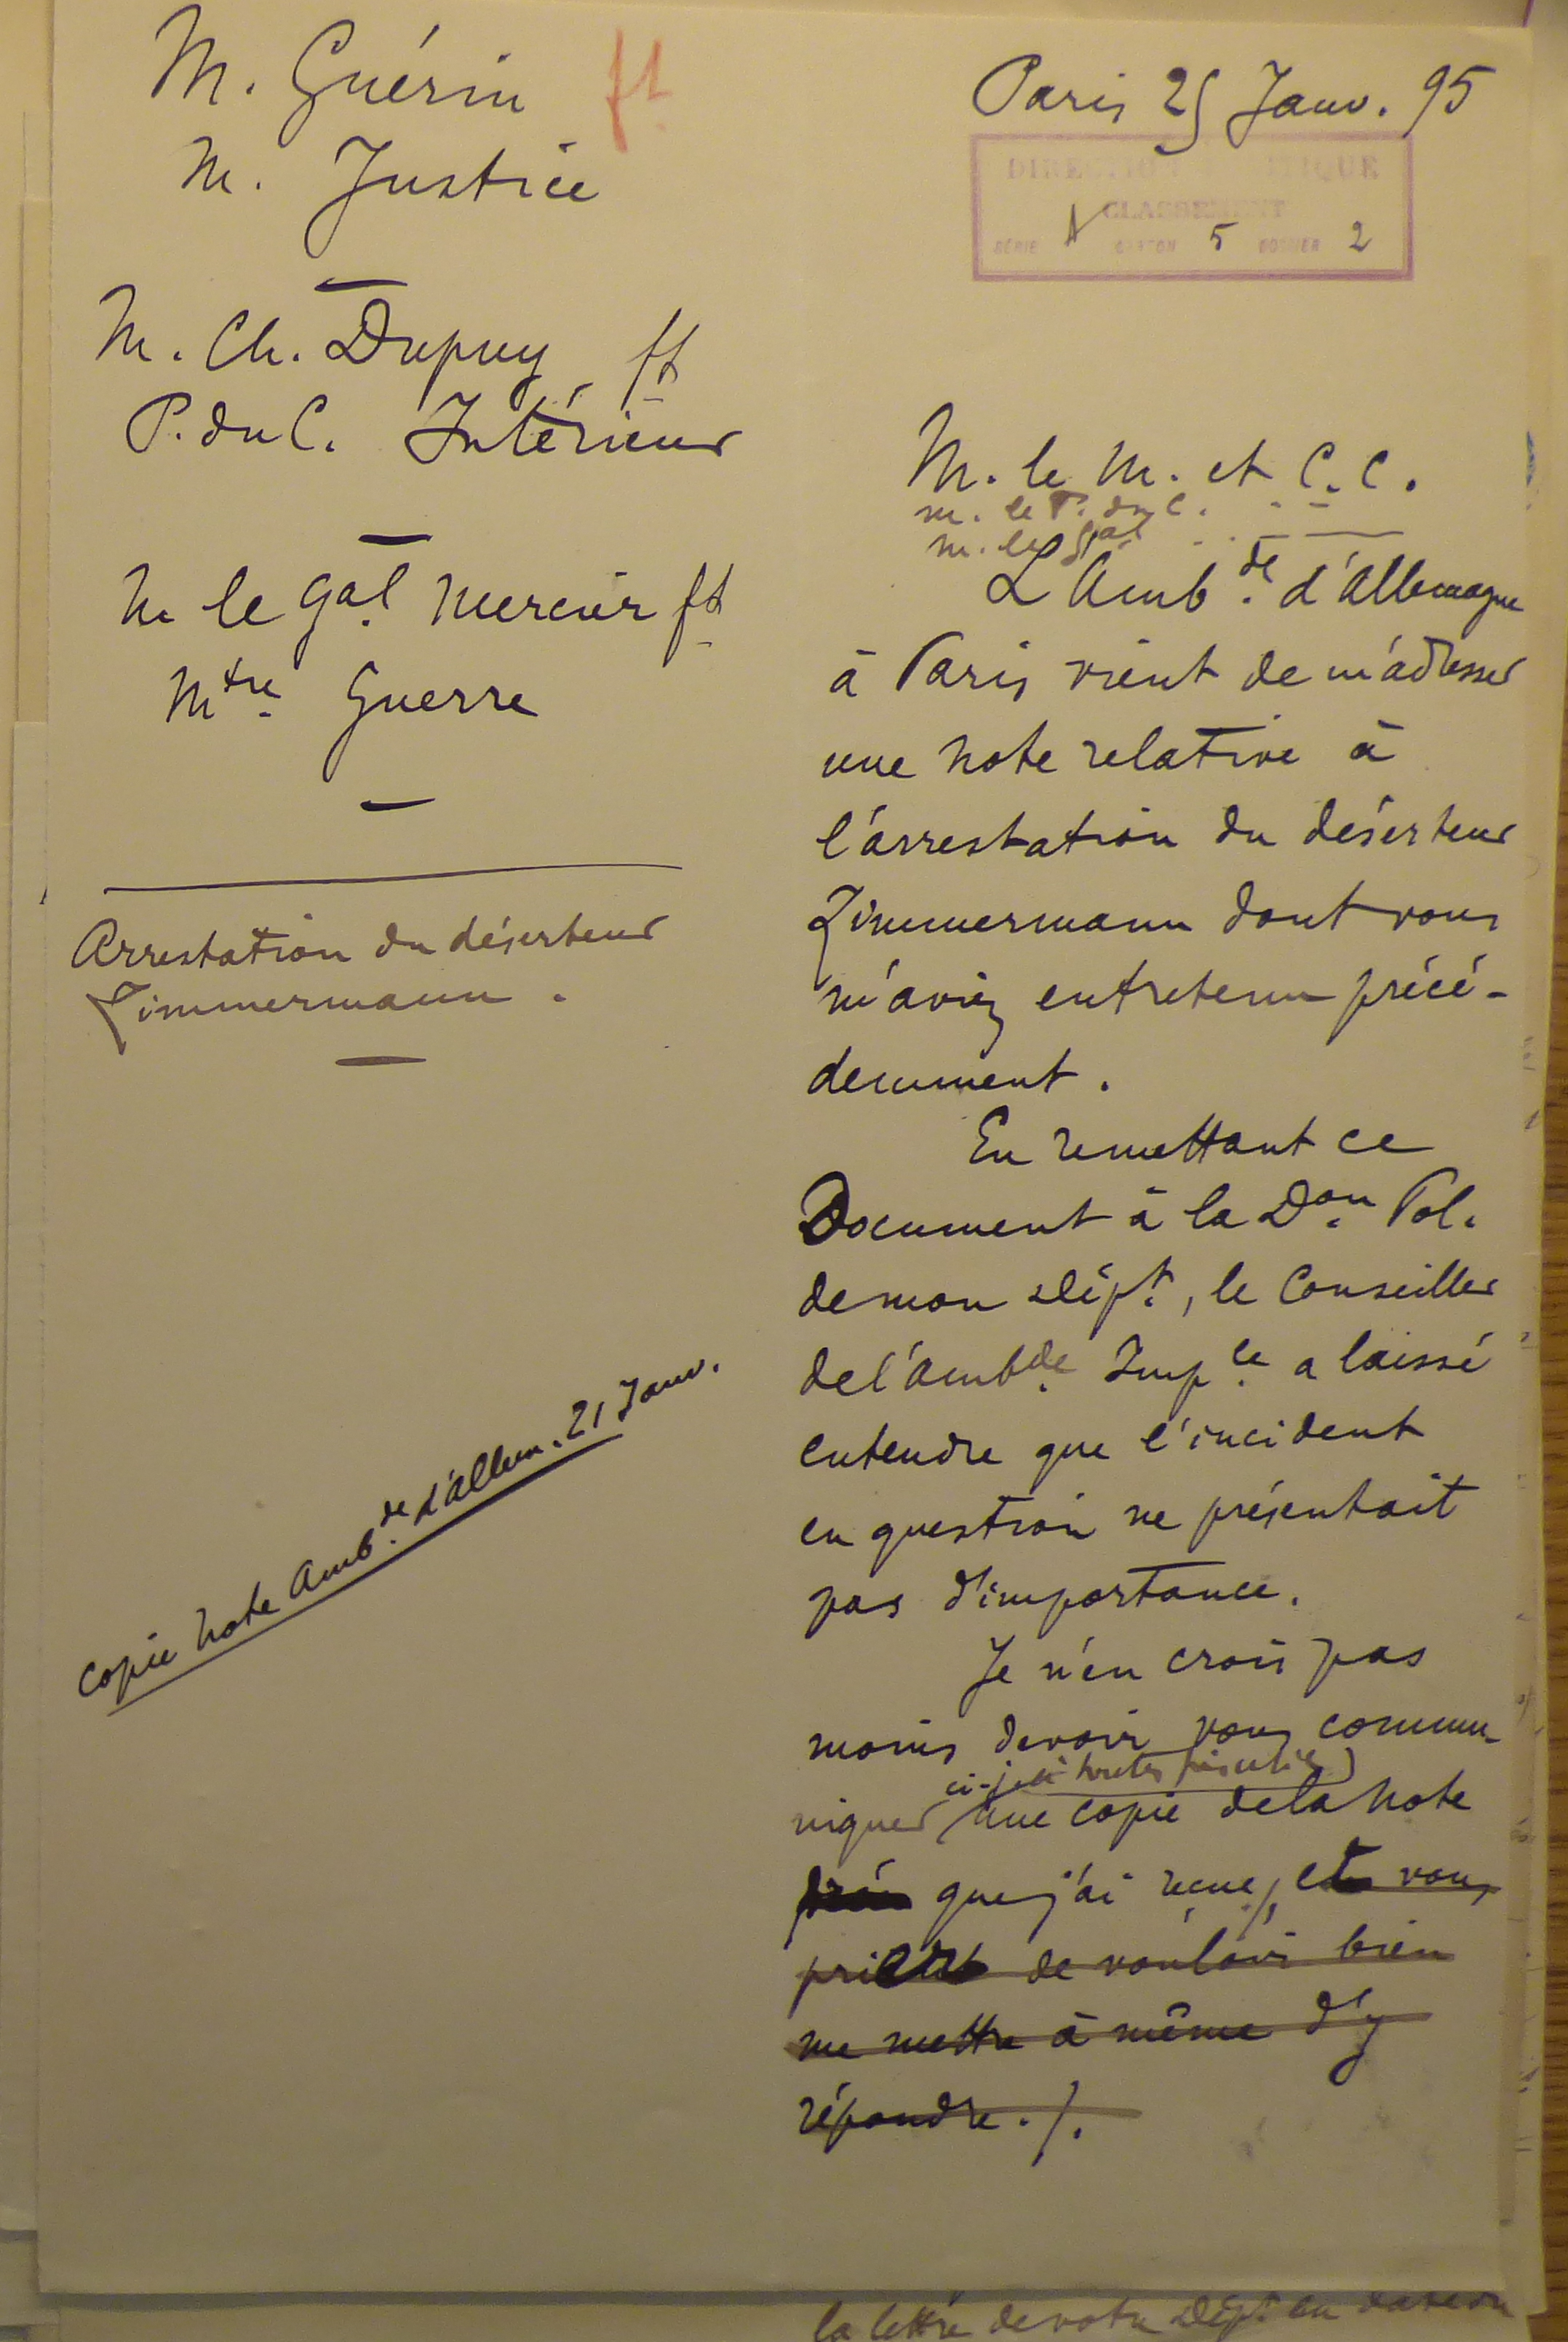 M. Guérin ft
M. Justice
M. Ch. Dupuy ft
P. du C. Intérieur
M le Gal Mercier ft
Mtre Guerre
Arrestation du déserteur
Zimmermann.
copie note Amb.de d'Allem. 21 Janv.
Paris 25 Janv. 95
DIRECTION POLITIQUE
CLASSEMENT
SÉRIE A CARTON 5 DOSSIER 2
M. le M. et C. C.
m. le P. du C.
m. le Gal
L'Amb.de d'Allemagne
à Paris vient de m'adresser
une note relative à
l'arrestation du déserteur
Zimmermann dont vous
m'aviez entretenu précé-
demment.
En remettant ce
Document à la Don. Pol.
de mon Dépt., le Conseiller
de l'Amb.de Imp.le a laissé
entendre que l'incident
en question ne présentait
pas d'importance.
Je n'en crois pas
moins devoir vous commu-
ci-joint toutes
niquer une copie de la note
que j'ai reçue, et vous
prier de vouloir bien
me mettre à même d'y
répondre./.
la lettre de votre Dépt. en date du